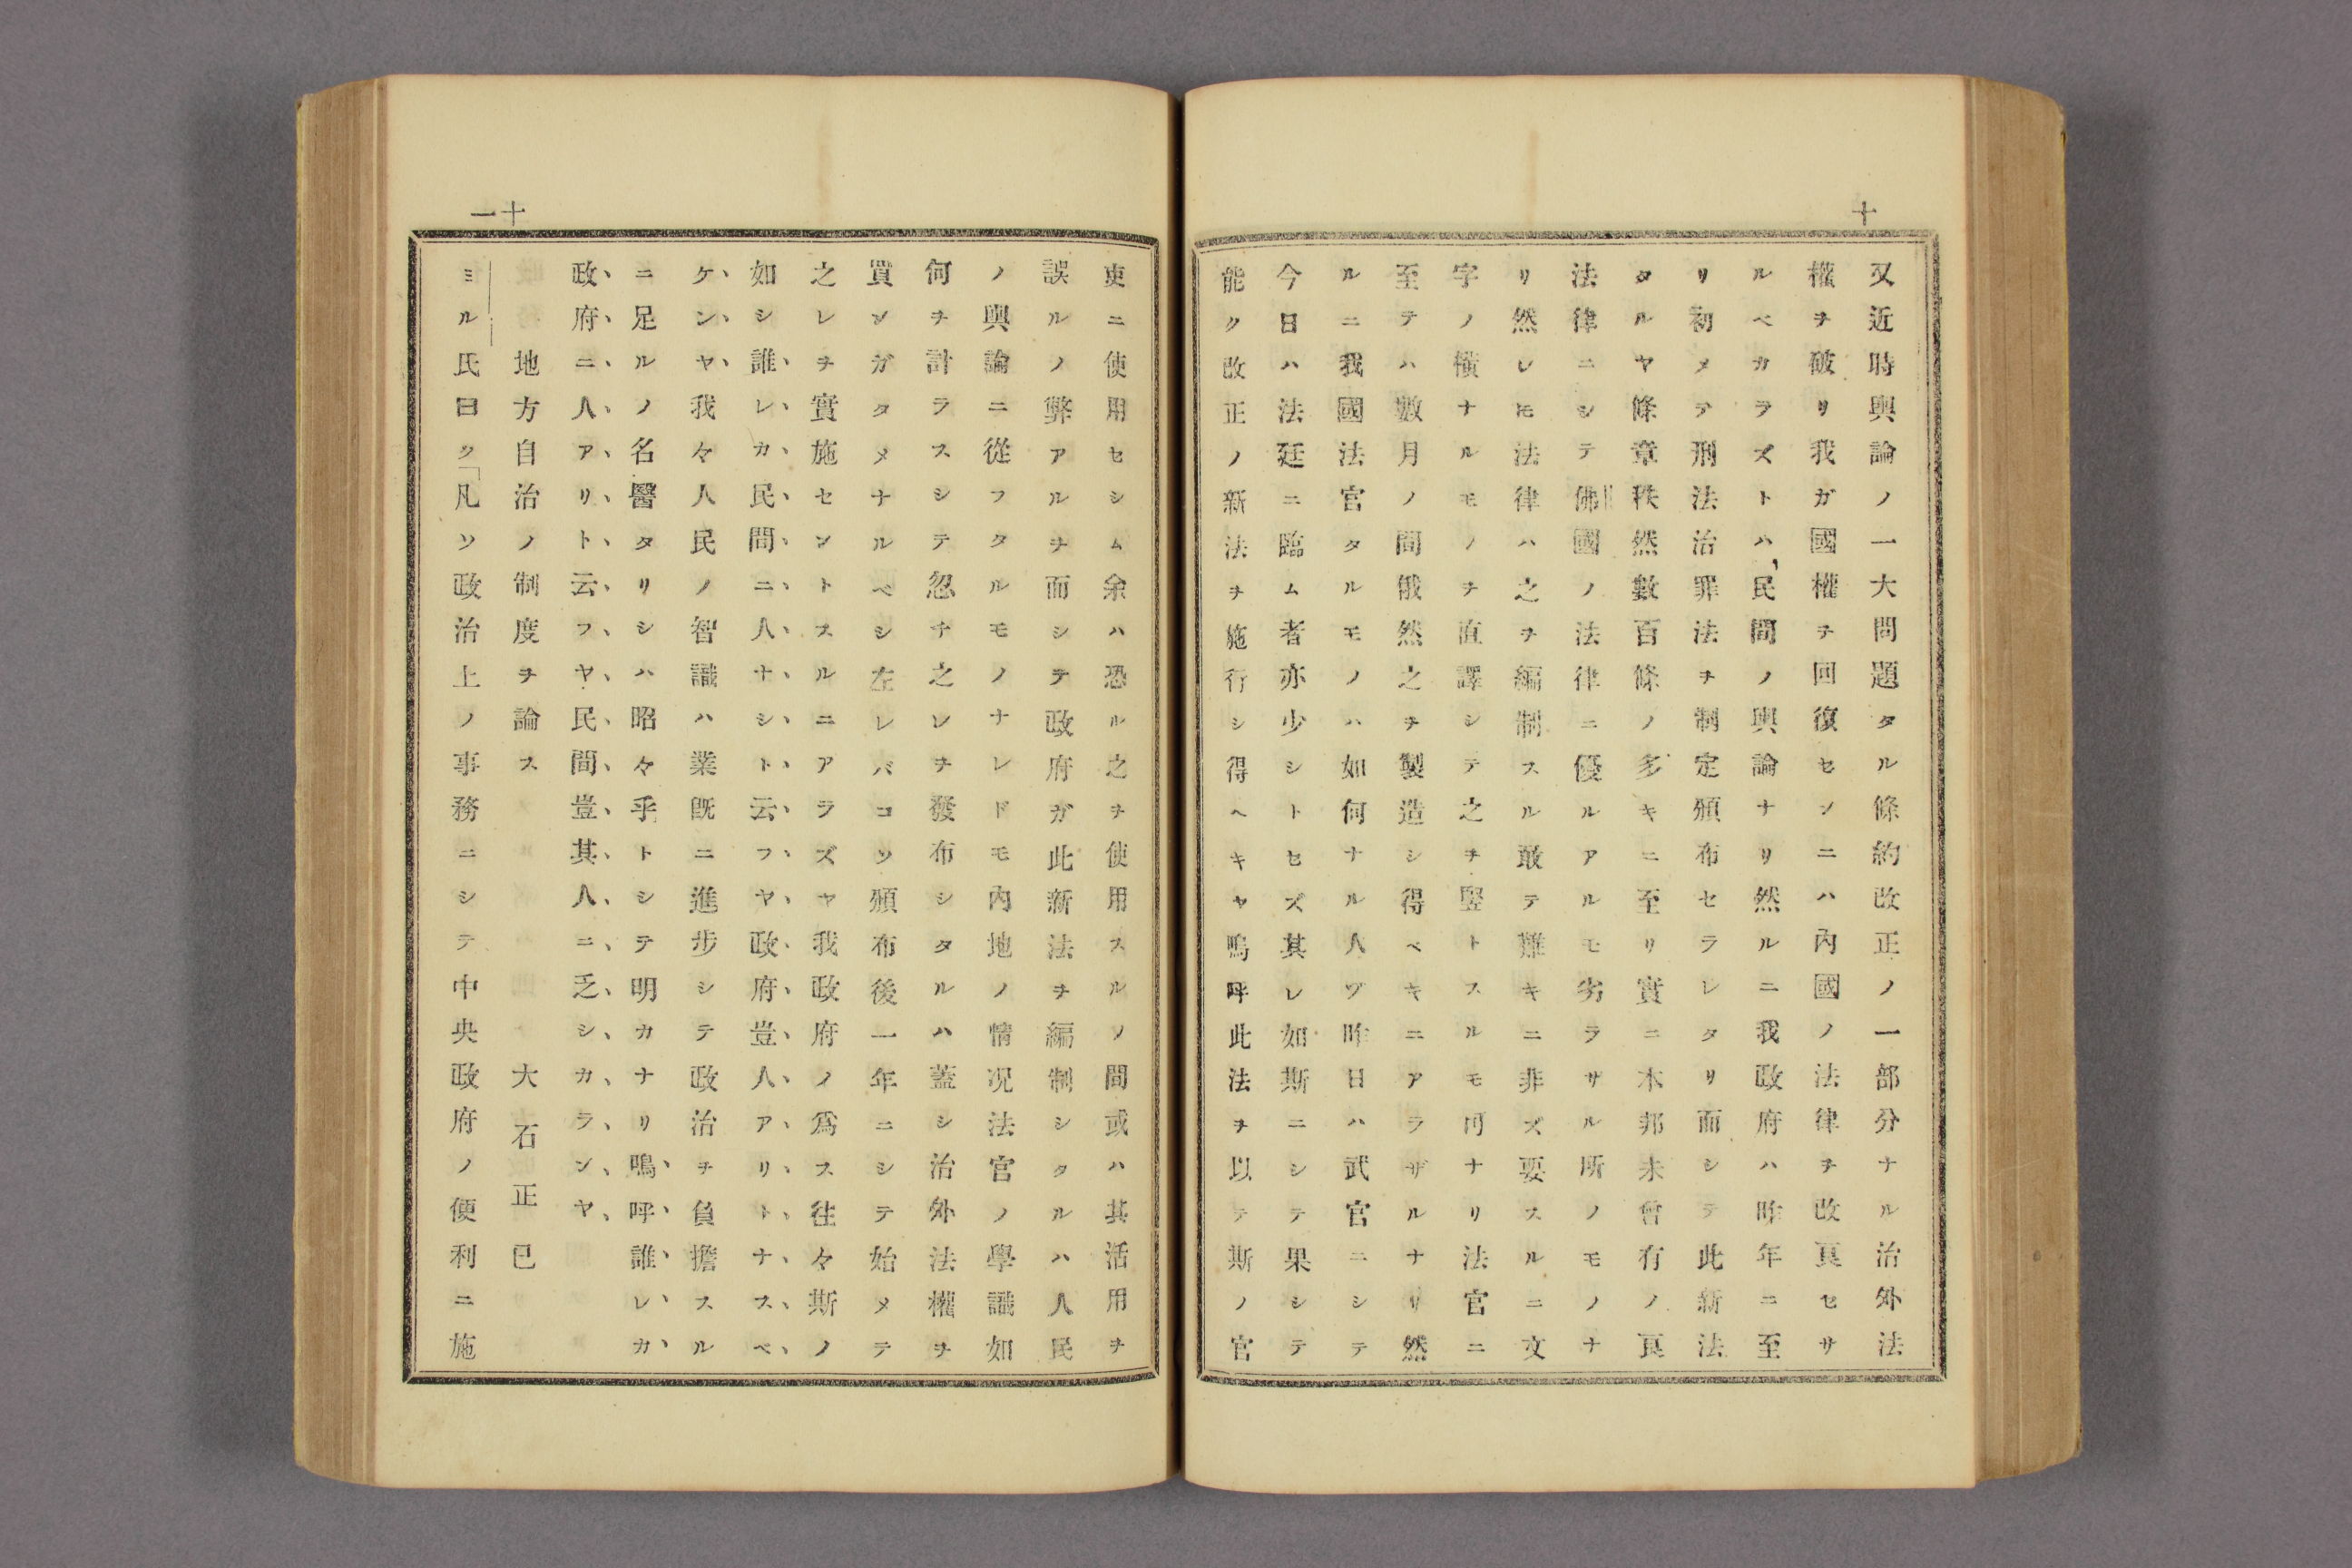 十
又近時輿論ノ一大問題タル條約改正ノ一部分ナル治外法
權ヲ破リ我ガ國權ヲ回復センニハ內國ノ法律ヲ改良セサ
ルベカラズトハ、民間ノ輿論ナリ然ルニ我政府ハ昨年ニ至
リ初メテ刑法治罪法ヲ制定頒布セラレタリ而シテ此新法
タルヤ條章秩然數百條ノ多キニ至リ實ニ本邦未曾有ノ良
法律ニシテ佛國ノ法律ニ優ルアルモ劣ラザル所ノモノナ
リ然レ𪜈法律ハ之ヲ編制スル敢テ難キニ非ズ要スルニ文
字ノ橫ナルモノヲ直譯シテ之ヲ竪トスルモ可ナリ法官ニ
至テハ數月ノ間俄然之ヲ製造シ得ベキニアラザルナリ然
ルニ我國法官タルモノハ如何ナル人ゾ昨日ハ武官ニシテ
今日ハ法廷ニ臨ム者亦少シトセズ其レ如斯ニシテ果シテ
能ク改正ノ新法ヲ施行シ得ヘキヤ嗚呼此法ヲ以テ斯ノ官
十一
吏ニ使用セシム余ハ恐ル之ヲ使用スルノ間或ハ其活用ヲ
誤ルノ弊アルヲ而シテ政府ガ此新法ヲ編制シタルハ人民
ノ輿論ニ從フタルモノナレドモ內地ノ情况法官ノ學識如
何ヲ計ラスシテ忽チ之レヲ發布シタルハ蓋シ治外法權ヲ
買ンガタメナルベシ左レバコソ頒布後一年ニシテ始メテ
之レヲ實施セントスルニアラズヤ我政府ノ爲ス往々斯ノ
如シ誰、レ、カ、民、間、ニ、人、ナ、シ、ト、云、フ、ヤ、政、府、豈、人、ア、リ、ト、ナ、ス、ベ、
ケ、ン、ヤ、我々人民ノ智識ハ業既ニ進步シテ政治ヲ負擔スル
ニ足ルノ名醫タリシハ昭々乎トシテ明カナリ嗚、呼、誰、レ、カ、
政、府、ニ、人、ア、リ、ト、云、フ、ヤ、民、間、豈、其、人、ニ、乏、シ、カ、ラ、ン、ヤ、
地方自治ノ制度ヲ論ス　大石正已
ミル氏曰ク「凡ソ政治上ノ事務ニシテ中央政府ノ便利ニ施